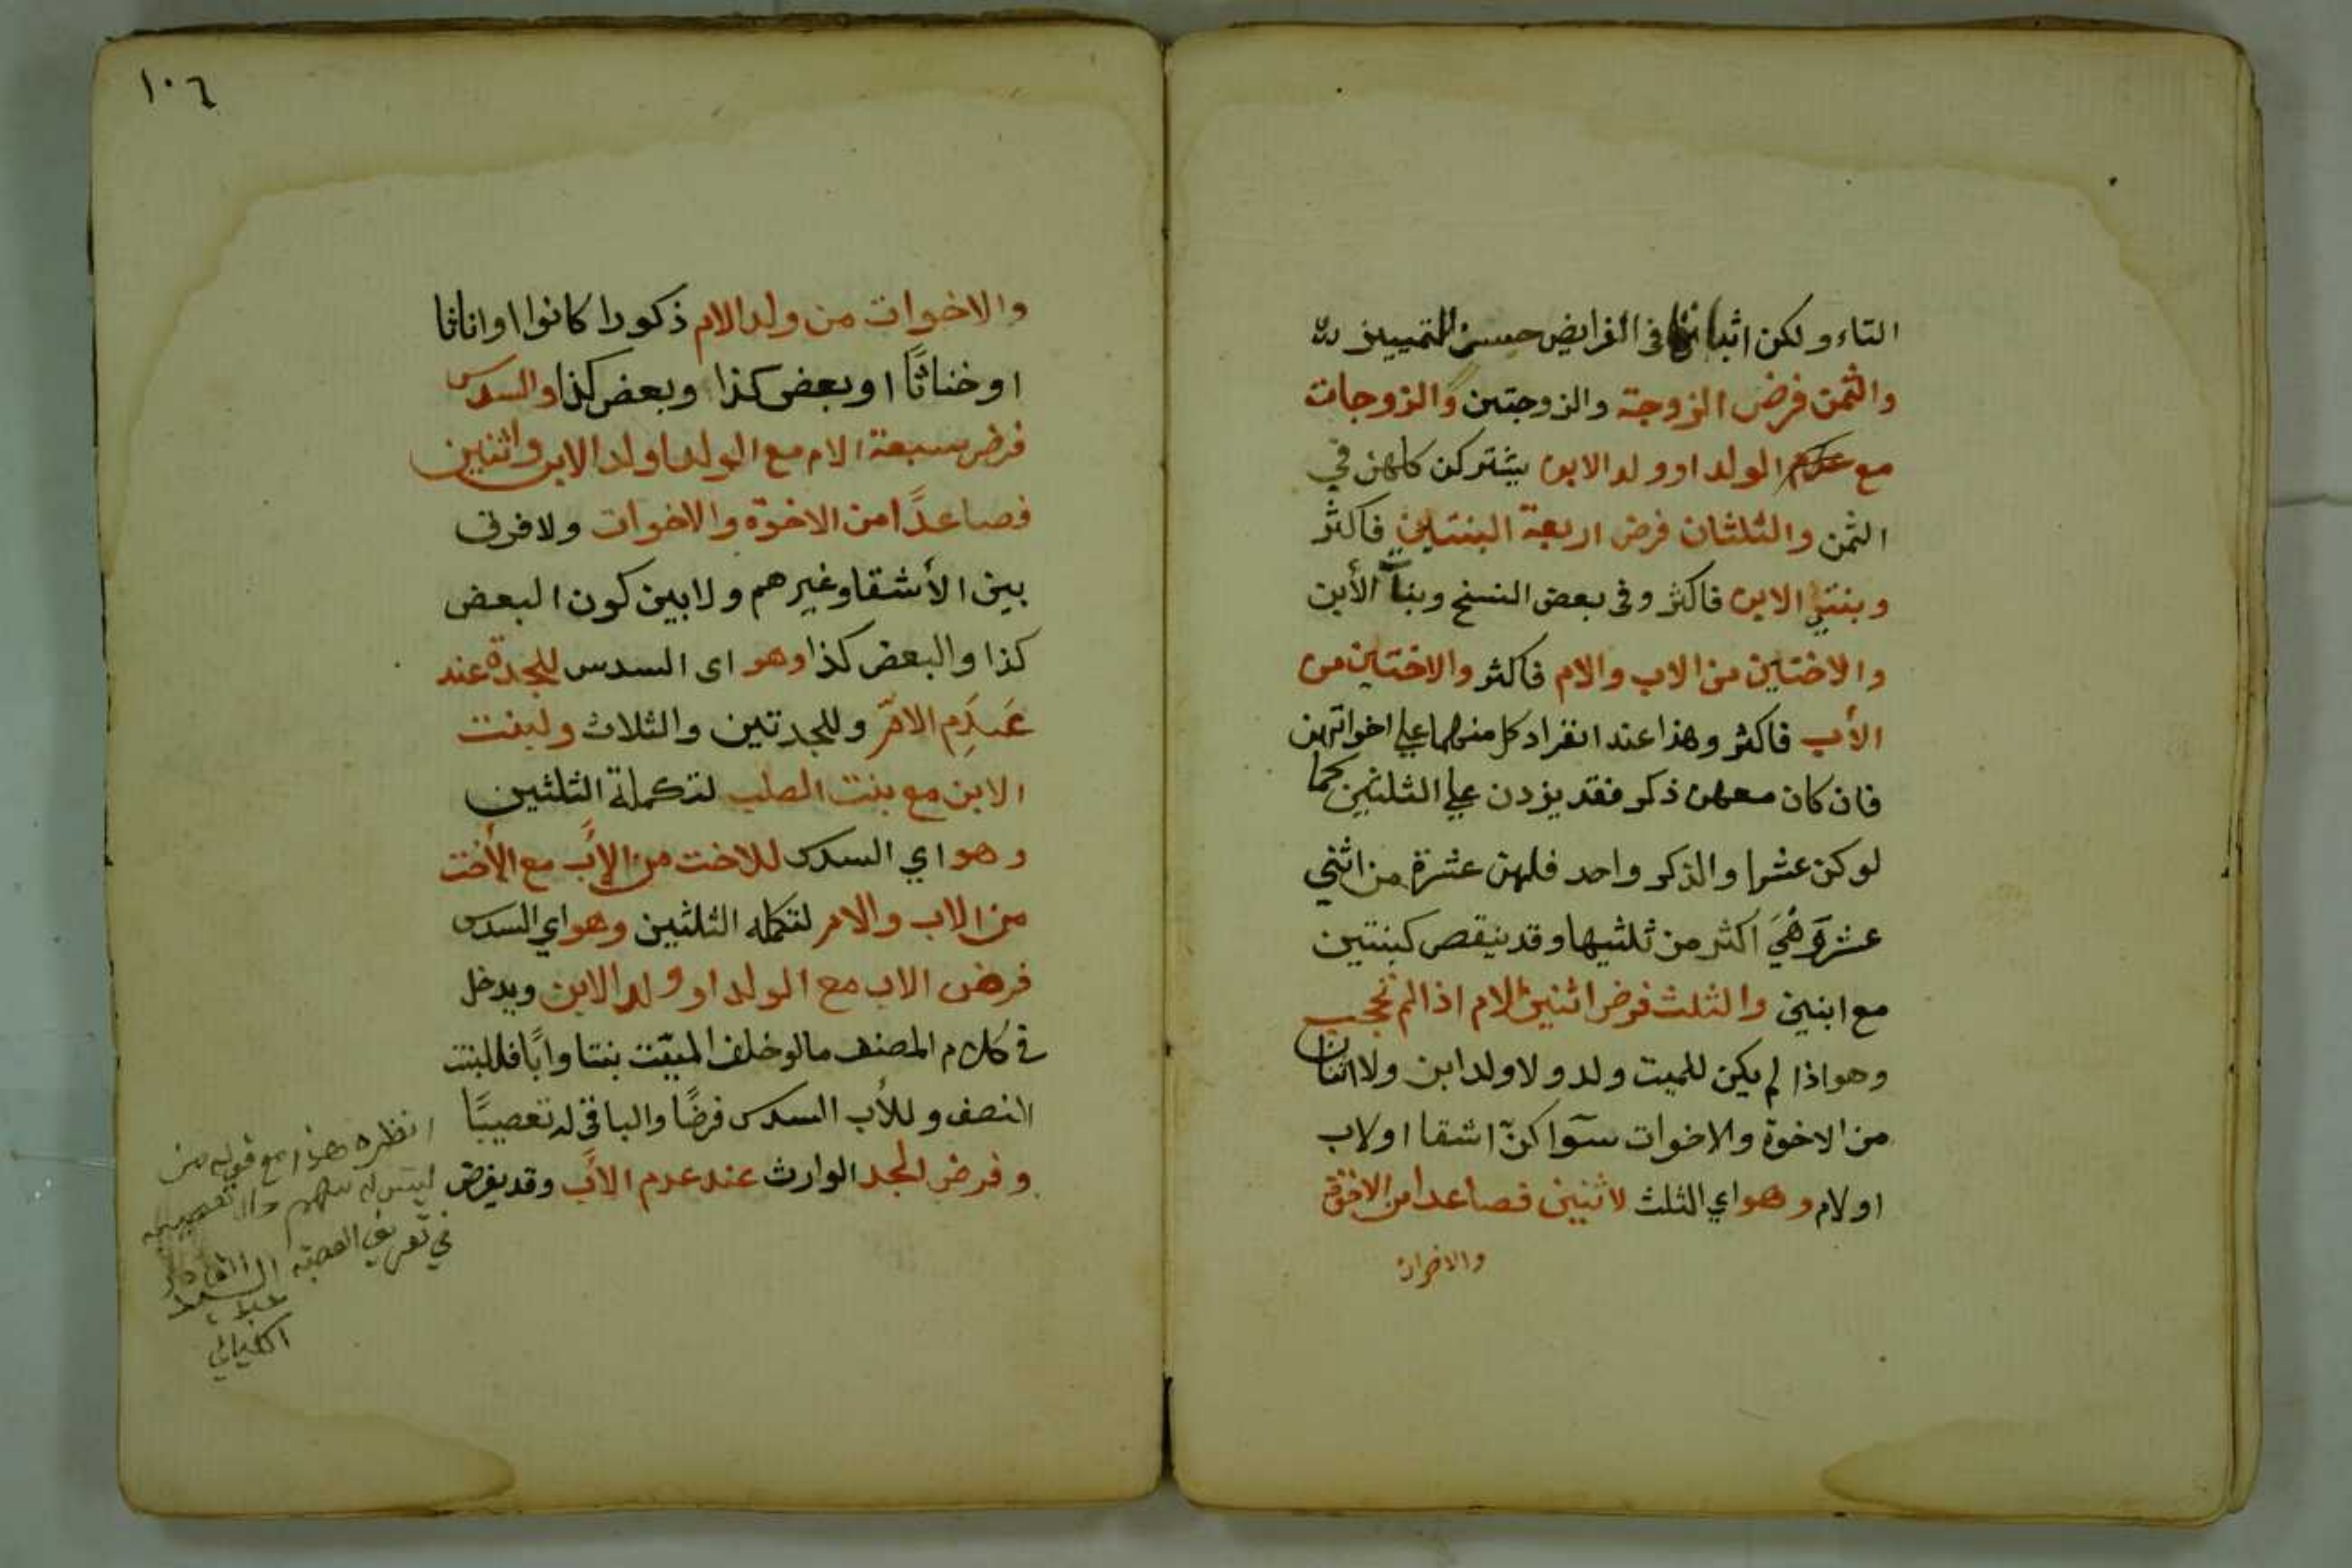 التاء ولكن اثباتها في الفرايض حسن للتمييز
والثمن فرض الزوجة والزوجتين والزوجات
مع عدم الولد او ولد الابن يشتركن كلهن في
الثمن والثلثان فرض اربعة البنتين فاكثر
وبنتي الابن فاكثر وفى بعض النسخ وبنات الأبن
والاختين من الاب والام فاكثر والاختين من
الأب فاكثر وهذا عند انفراد كل منهما على اخواتهن
فان كان معهن ذكر فقد يزدن على الثلثين كما
لو كن عشرا والذكر واحد فلهن عشرة من اثني
عشر وَهْيَ اكثر من ثلثيها وقد ينقص كبنتين
مع ابنين والثلث فرض اثنين الام اذا لم تحجب
وهو اذا لم يكن للميت ولد ولا ولد ابن ولا اثنان
من الاخوة والاخوات سوآ كنّ اشقا او لاب
او لام وهو اي الثلث لاثنين فصاعدا من الاخوة
والاخوات
١٠٦
والاخوات من ولد الام ذكورا كانوا او اناثا
او خناثًا او بعض كذا وبعض كذا والسدس
فرض سبعة الام مع الولد او لد الابن واثنين
فصاعدًا من الاخوة والاخوات ولا فرق
بين الأشقا وغيرهم ولا بين كون البعض
كذا والبعض كذا وهو اى السدس للجدة عند
عَدَمِ الامّ وللجدتين والثلاث ولبنت
الابن مع بنت الصلب لتكملة الثلثين
وهو اي السدس للاخت من الأَب مع الأخت
من الاب والام لتكمله الثلثين وهو اي السدس
فرض الاب مع الولد او ولد الابن ويدخل
في كلام المصنف ما لو خلف الميّت بنتا وابًا فللبنت
النصف وللأب السدس فرضًا والباقي له تعصيبًا
وفرض الجد الوارث عند عدم الأَب وقد يفرض
انظره هذا مع قوله من
ليس له سهم والتعصيب
في تعريف العصبه